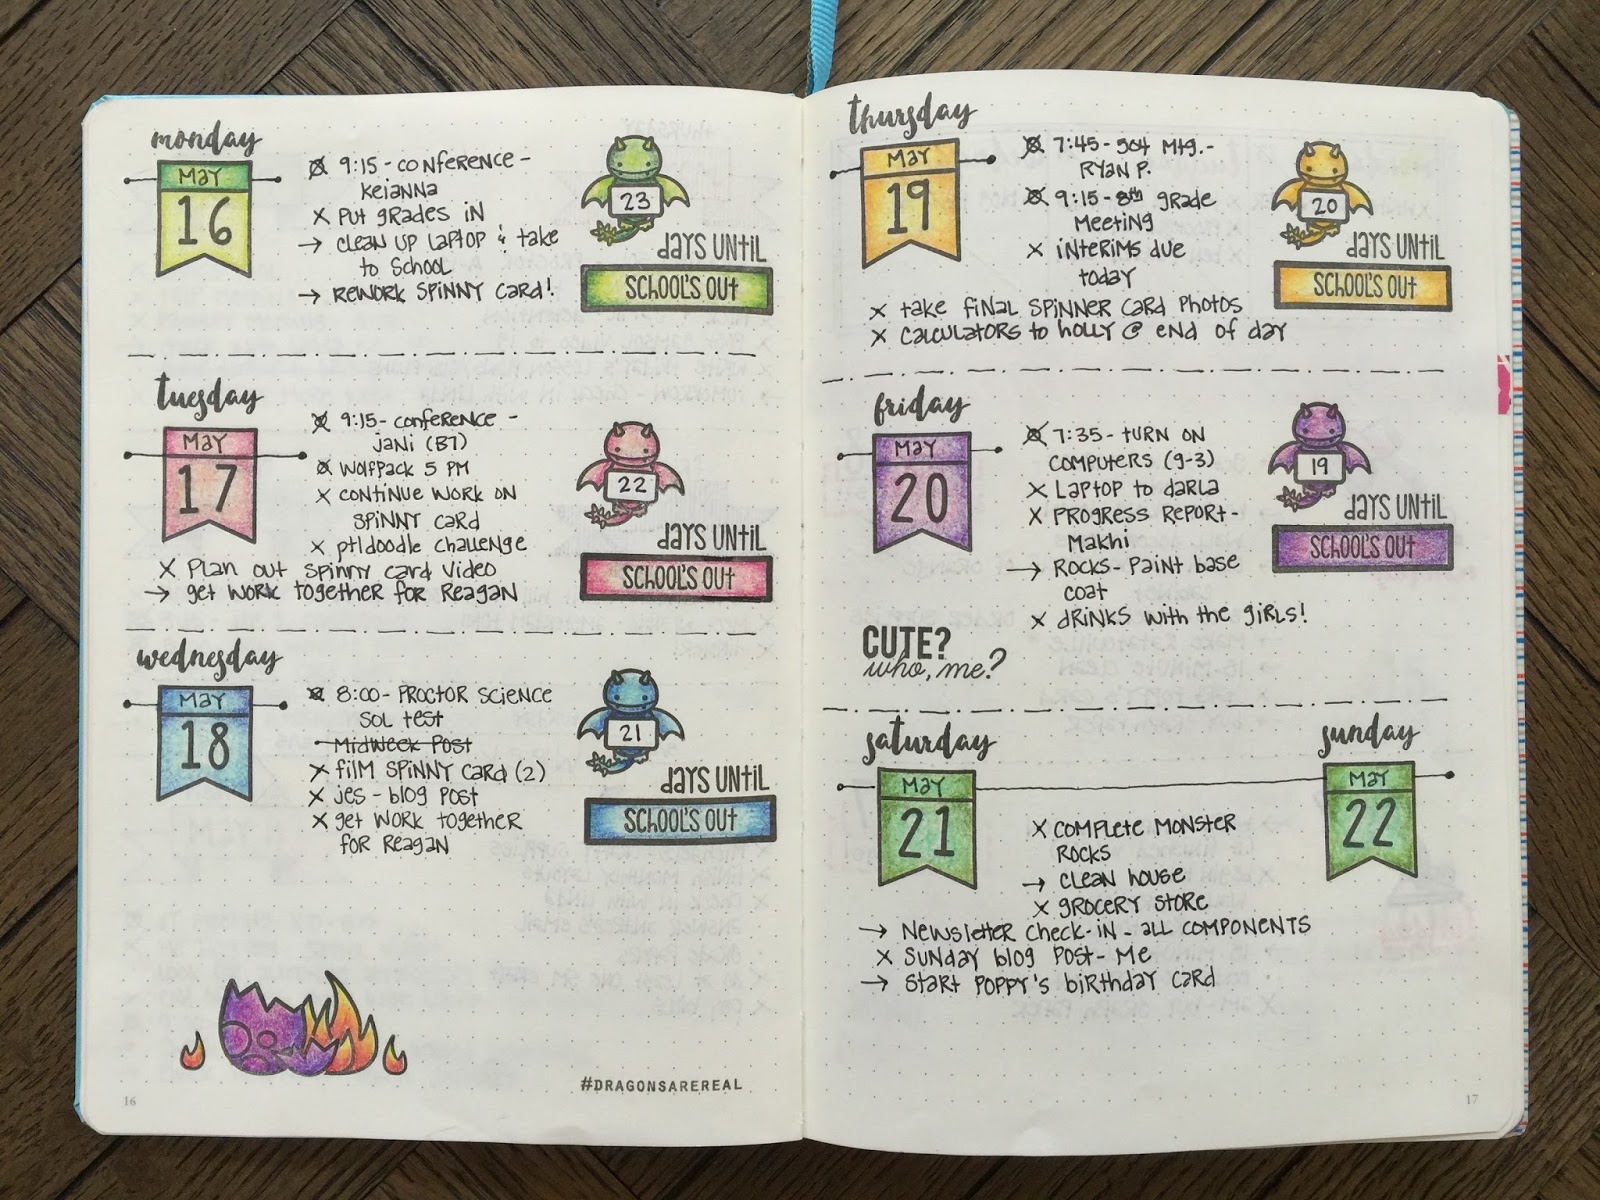 monday
May
16
9:15 - conference -
Keianna
x Put grades in
→ clean up laptop & take
to school
→ Rework spinny card!
23
days until
school's out
tuesday
May
17
9:15 - conference -
Jani (B7)
Wolfpack 5 PM
x continue work on
spinny card
x ptldoodle challenge
x Plan out spinny card video
→ get work together for Reagan
22
days until
school's out
wednesday
May
18
8:00 - Proctor Science
SOL test
- Midweek Post
x film spinny card (2)
x Jes - blog post
x get work together
for Reagan
21
days until
school's out
#DRAGONSAREREAL
16
thursday
May
19
7:45 - 504 mtg. -
Ryan P.
9:15 - 8th grade
meeting
x interims due
today
x take final spinner card photos
x calculators to Holly @ end of day
20
days until
school's out
friday
May
20
7:35 - turn on
computers (9-3)
x Laptop to Darla
x Progress Report -
Makhi
→ Rocks - paint base
coat
x drinks with the girls!
19
days until
school's out
CUTE?
who, me?
saturday
May
21
sunday
May
22
x complete monster
rocks
→ clean house
x grocery store
→ Newsletter check-in - all components
x Sunday blog post - me
→ start Poppy's birthday card
17